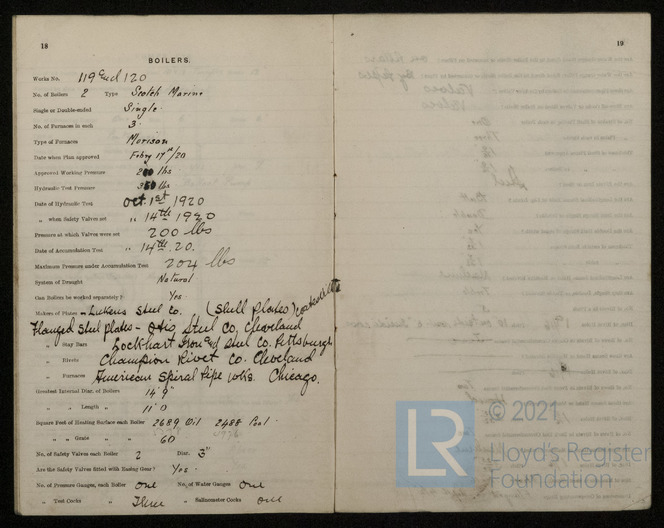 18
BOILERS.
Works No. 119 and 120
No. of Boilers 2 Type Scotch Marine
Single or Double-ended Single
No. of Furnaces in each 3
Type of Furnaces Morison
Date when Plan approved Febry 17th/20
Approved Working Pressure 200 lbs
Hydraulic Test Pressure 350 lbs
Date of Hydraulic Test Oct. 1st 1920
„ when Safety Valves set „ 14th 1920
Pressure at which Valves were set 200 lbs
Date of Accumulation Test „ 14th. 20.
Maximum Pressure under Accumulation Test 204 lbs
System of Draught Natural
Can Boilers be worked separately? Yes.
Makers of Plates – Lukens Steel Co. (Shell plates)
Flanged steel plates – Otis Steel Co. Cleveland
„ Stay Bars Lockhart Iron and Steel Co. Pittsburgh
„ Rivets Champion Rivet Co. Cleveland
„ Furnaces American Spiral Pipe wks. Chicago.
Greatest External Diam. of Boilers 14' 9"
„ „ Length „ 11' 0
Square Feet of Heating Surface each Boiler 2689 Oil 2488 Coal.
„ „ Grate „ „ 60
No. of Safety Valves each Boiler 2 Diar. 3"
Are the Safety Valves fitted with Easing Gear? Yes.
No. of Pressure Gauges, each Boiler one No. of Water Gauges one
„ Test Cocks „ Three „ Salinometer Cocks one
19
© 2021
LR Lloyd's Register
Foundation